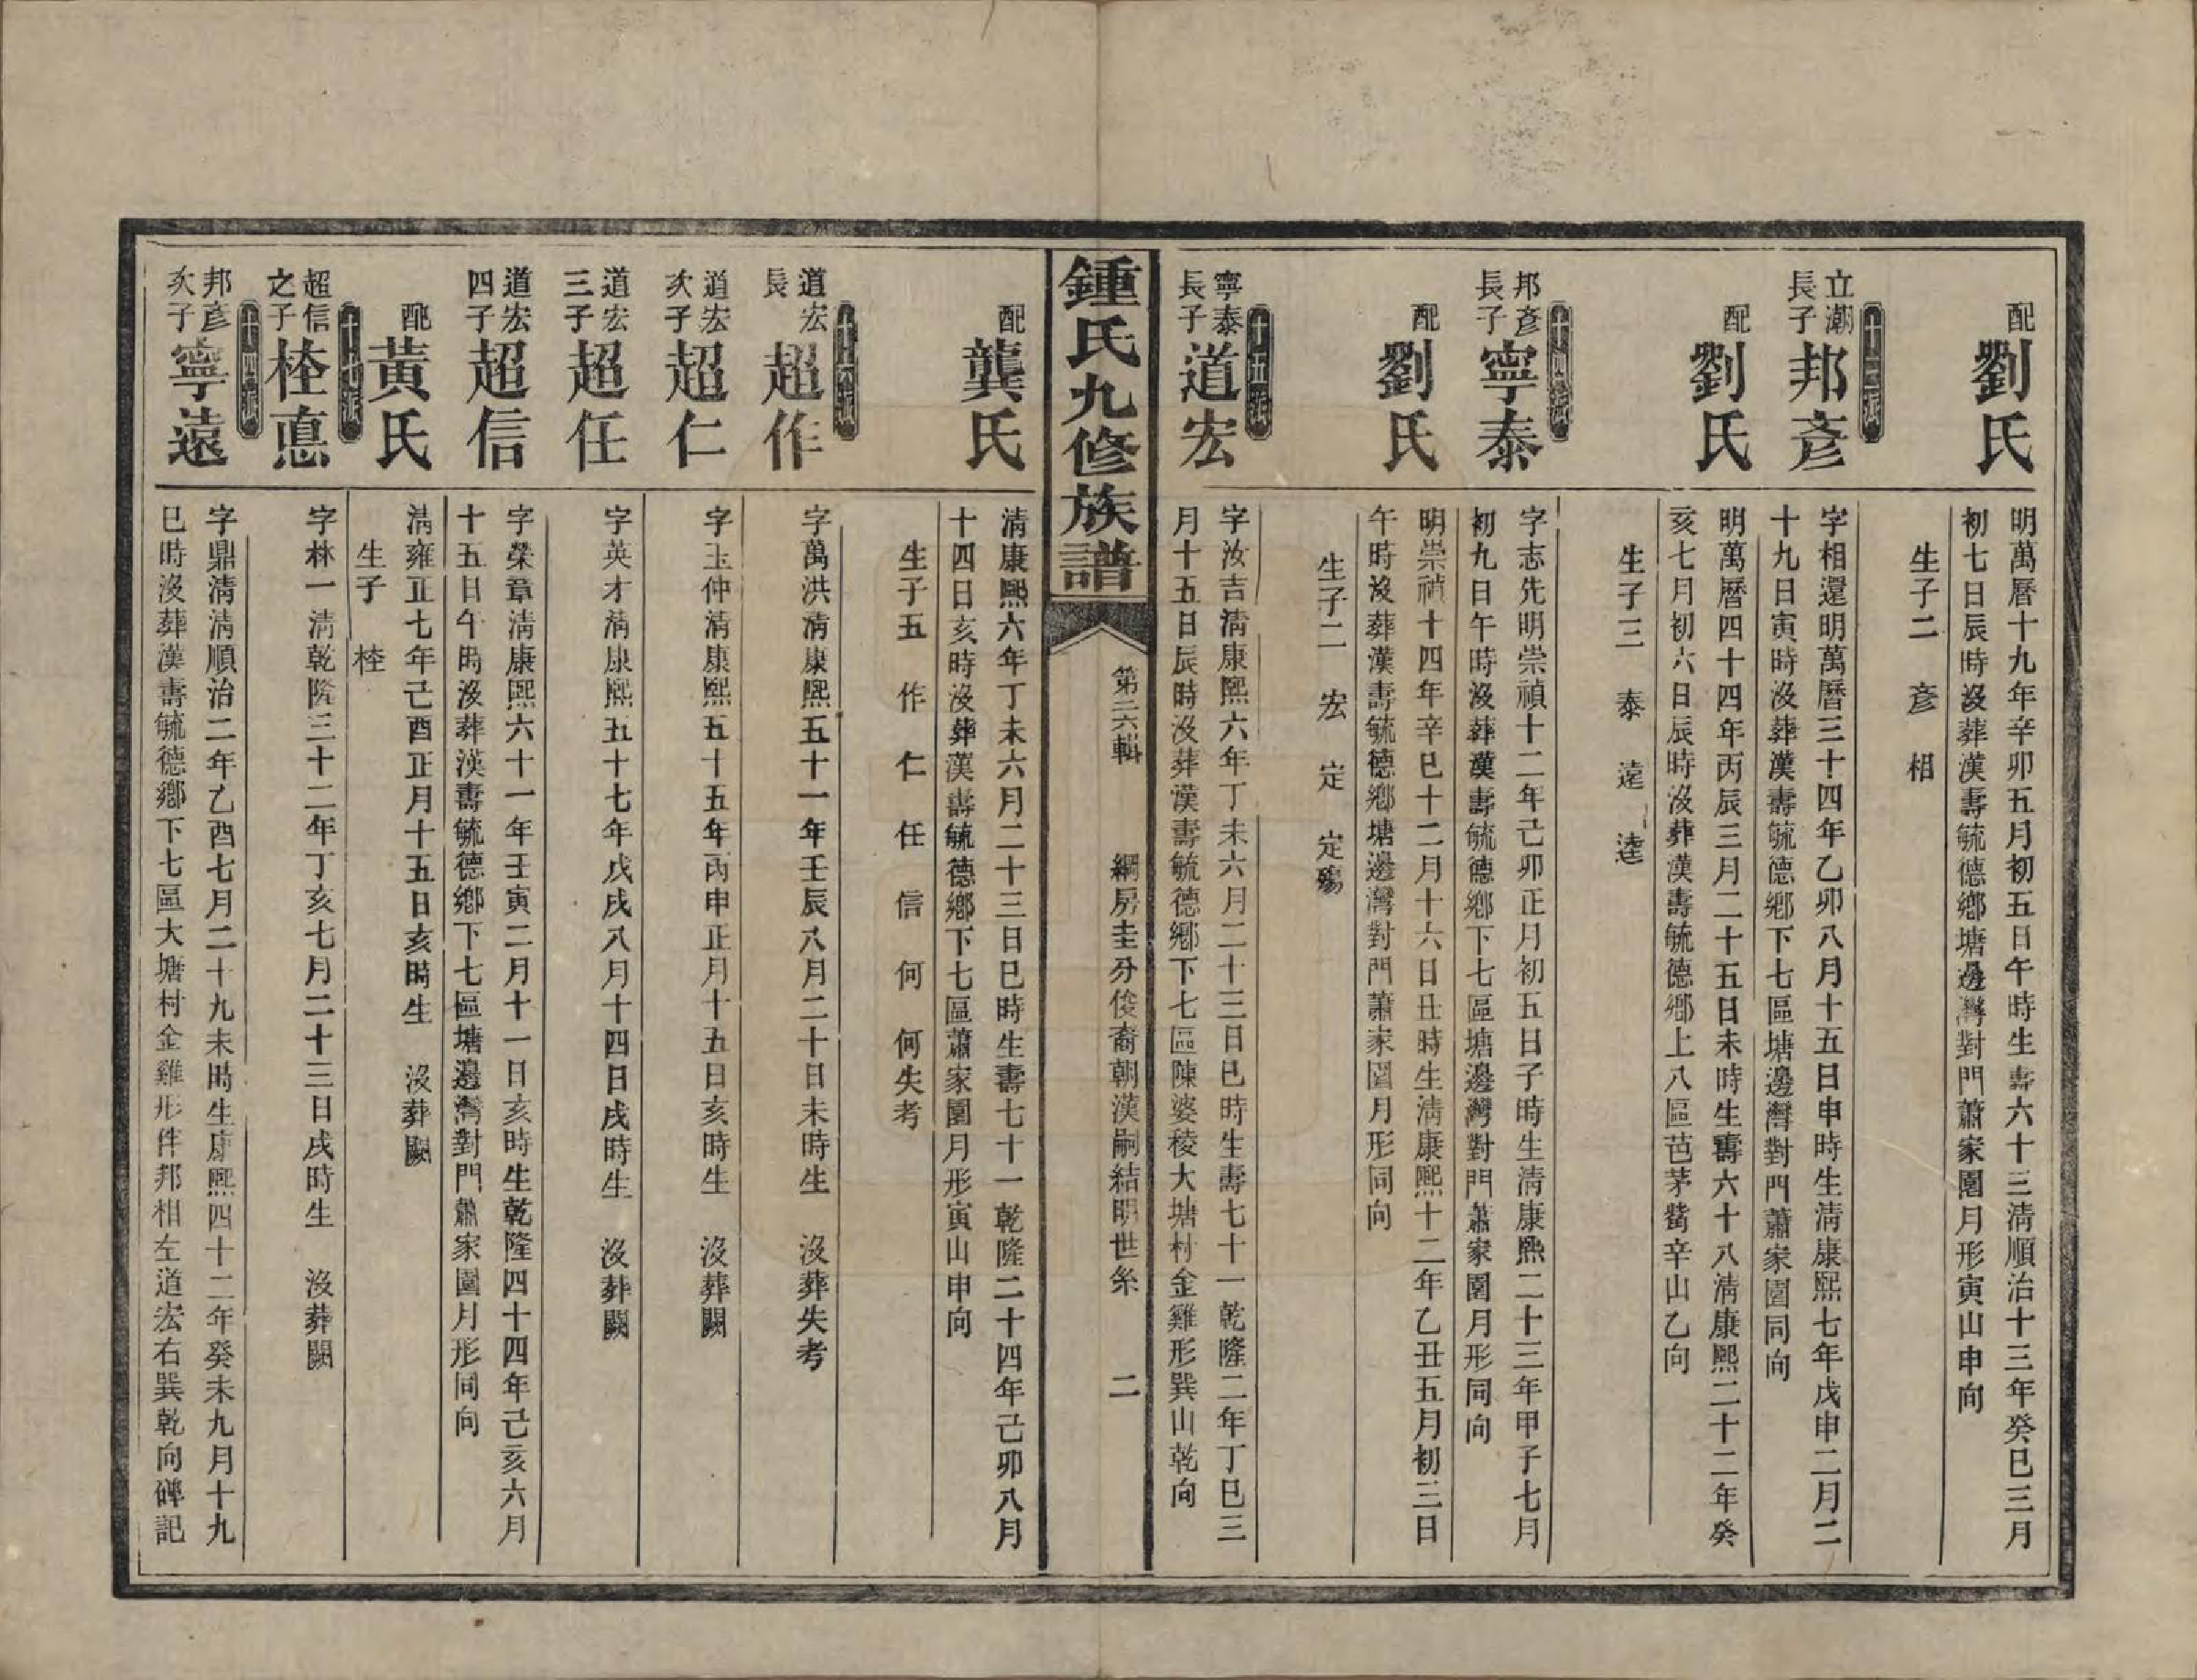 配
劉氏
明萬曆十九年辛卯五月初五日午時生壽六十三清順治十三年癸巳三月
初七日辰時沒葬漢壽毓德鄉塘邊灣對門蕭家園月形寅山申向
生子二　彥　相
十三派
立潮
長子
邦彥
字相還明萬曆三十四年乙卯八月十五日申時生清康熙七年戊申二月二
十九日寅時沒葬漢壽毓德鄉下七區塘邊灣對門蕭家園同向
配
劉氏
明萬曆四十四年丙辰三月二十五日未時生壽六十八清康熙二十二年癸
亥七月初六日辰時沒葬漢壽毓德鄉上八區芭茅觜辛山乙向
生子三　泰　遠　逵
十四派
邦彥
長子
寧泰
字志先明崇禎十二年己卯正月初五日子時生清康熙二十三年甲子七月
初九日午時沒葬漢壽毓德鄉下七區塘邊灣對門蕭家園月形同向
配
劉氏
明崇禎十四年辛巳十二月十六日丑時生清康熙十二年乙丑五月初三日
午時沒葬漢壽毓德鄉塘邊灣對門蕭家園月形同向
生子二　宏　定　定殤
十五派
寧泰
長子
道宏
字汝吉清康熙六年丁未六月二十三日巳時生壽七十一乾隆二年丁巳三
月十五日辰時沒葬漢壽毓德鄉下七區陳婆稜大塘村金雞形巽山乾向
鍾氏九修族譜
第二六輯
綱房圭分俊裔朝漢嗣結明世系
二
配
龔氏
清康熙六年丁未六月二十三日巳時生壽七十一乾隆二十四年己卯八月
十四日亥時沒葬漢壽毓德鄉下七區蕭家園月形寅山申向
生子五　作　仁　任　信　何　何失考
十六派
道宏
長
超作
字萬洪清康熙五十一年壬辰八月二十日未時生　沒葬失考
道宏
次子
超仁
字玉仲清康熙五十五年丙申正月十五日亥時生　沒葬闕
道宏
三子
超任
字英才清康熙五十七年戊戌八月十四日戌時生　沒葬闕
道宏
四子
超信
字榮章清康熙六十一年壬寅二月十一日亥時生乾隆四十四年己亥六月
十五日午時沒葬漢壽毓德鄉下七區塘邊灣對門蕭家園月形同向
配
黃氏
清雍正七年己酉正月十五日亥時生　沒葬闕
生子　桎
十七派
超信
之子
桎惪
字林一清乾隆三十二年丁亥七月二十三日戌時生　沒葬闕
十四派
邦彥
次子
寧遠
字鼎清清順治二年乙酉七月二十九未時生康熙四十二年癸未九月十九
巳時沒葬漢壽毓德鄉下七區大塘村金雞形伴邦相左道宏右巽乾向碑記